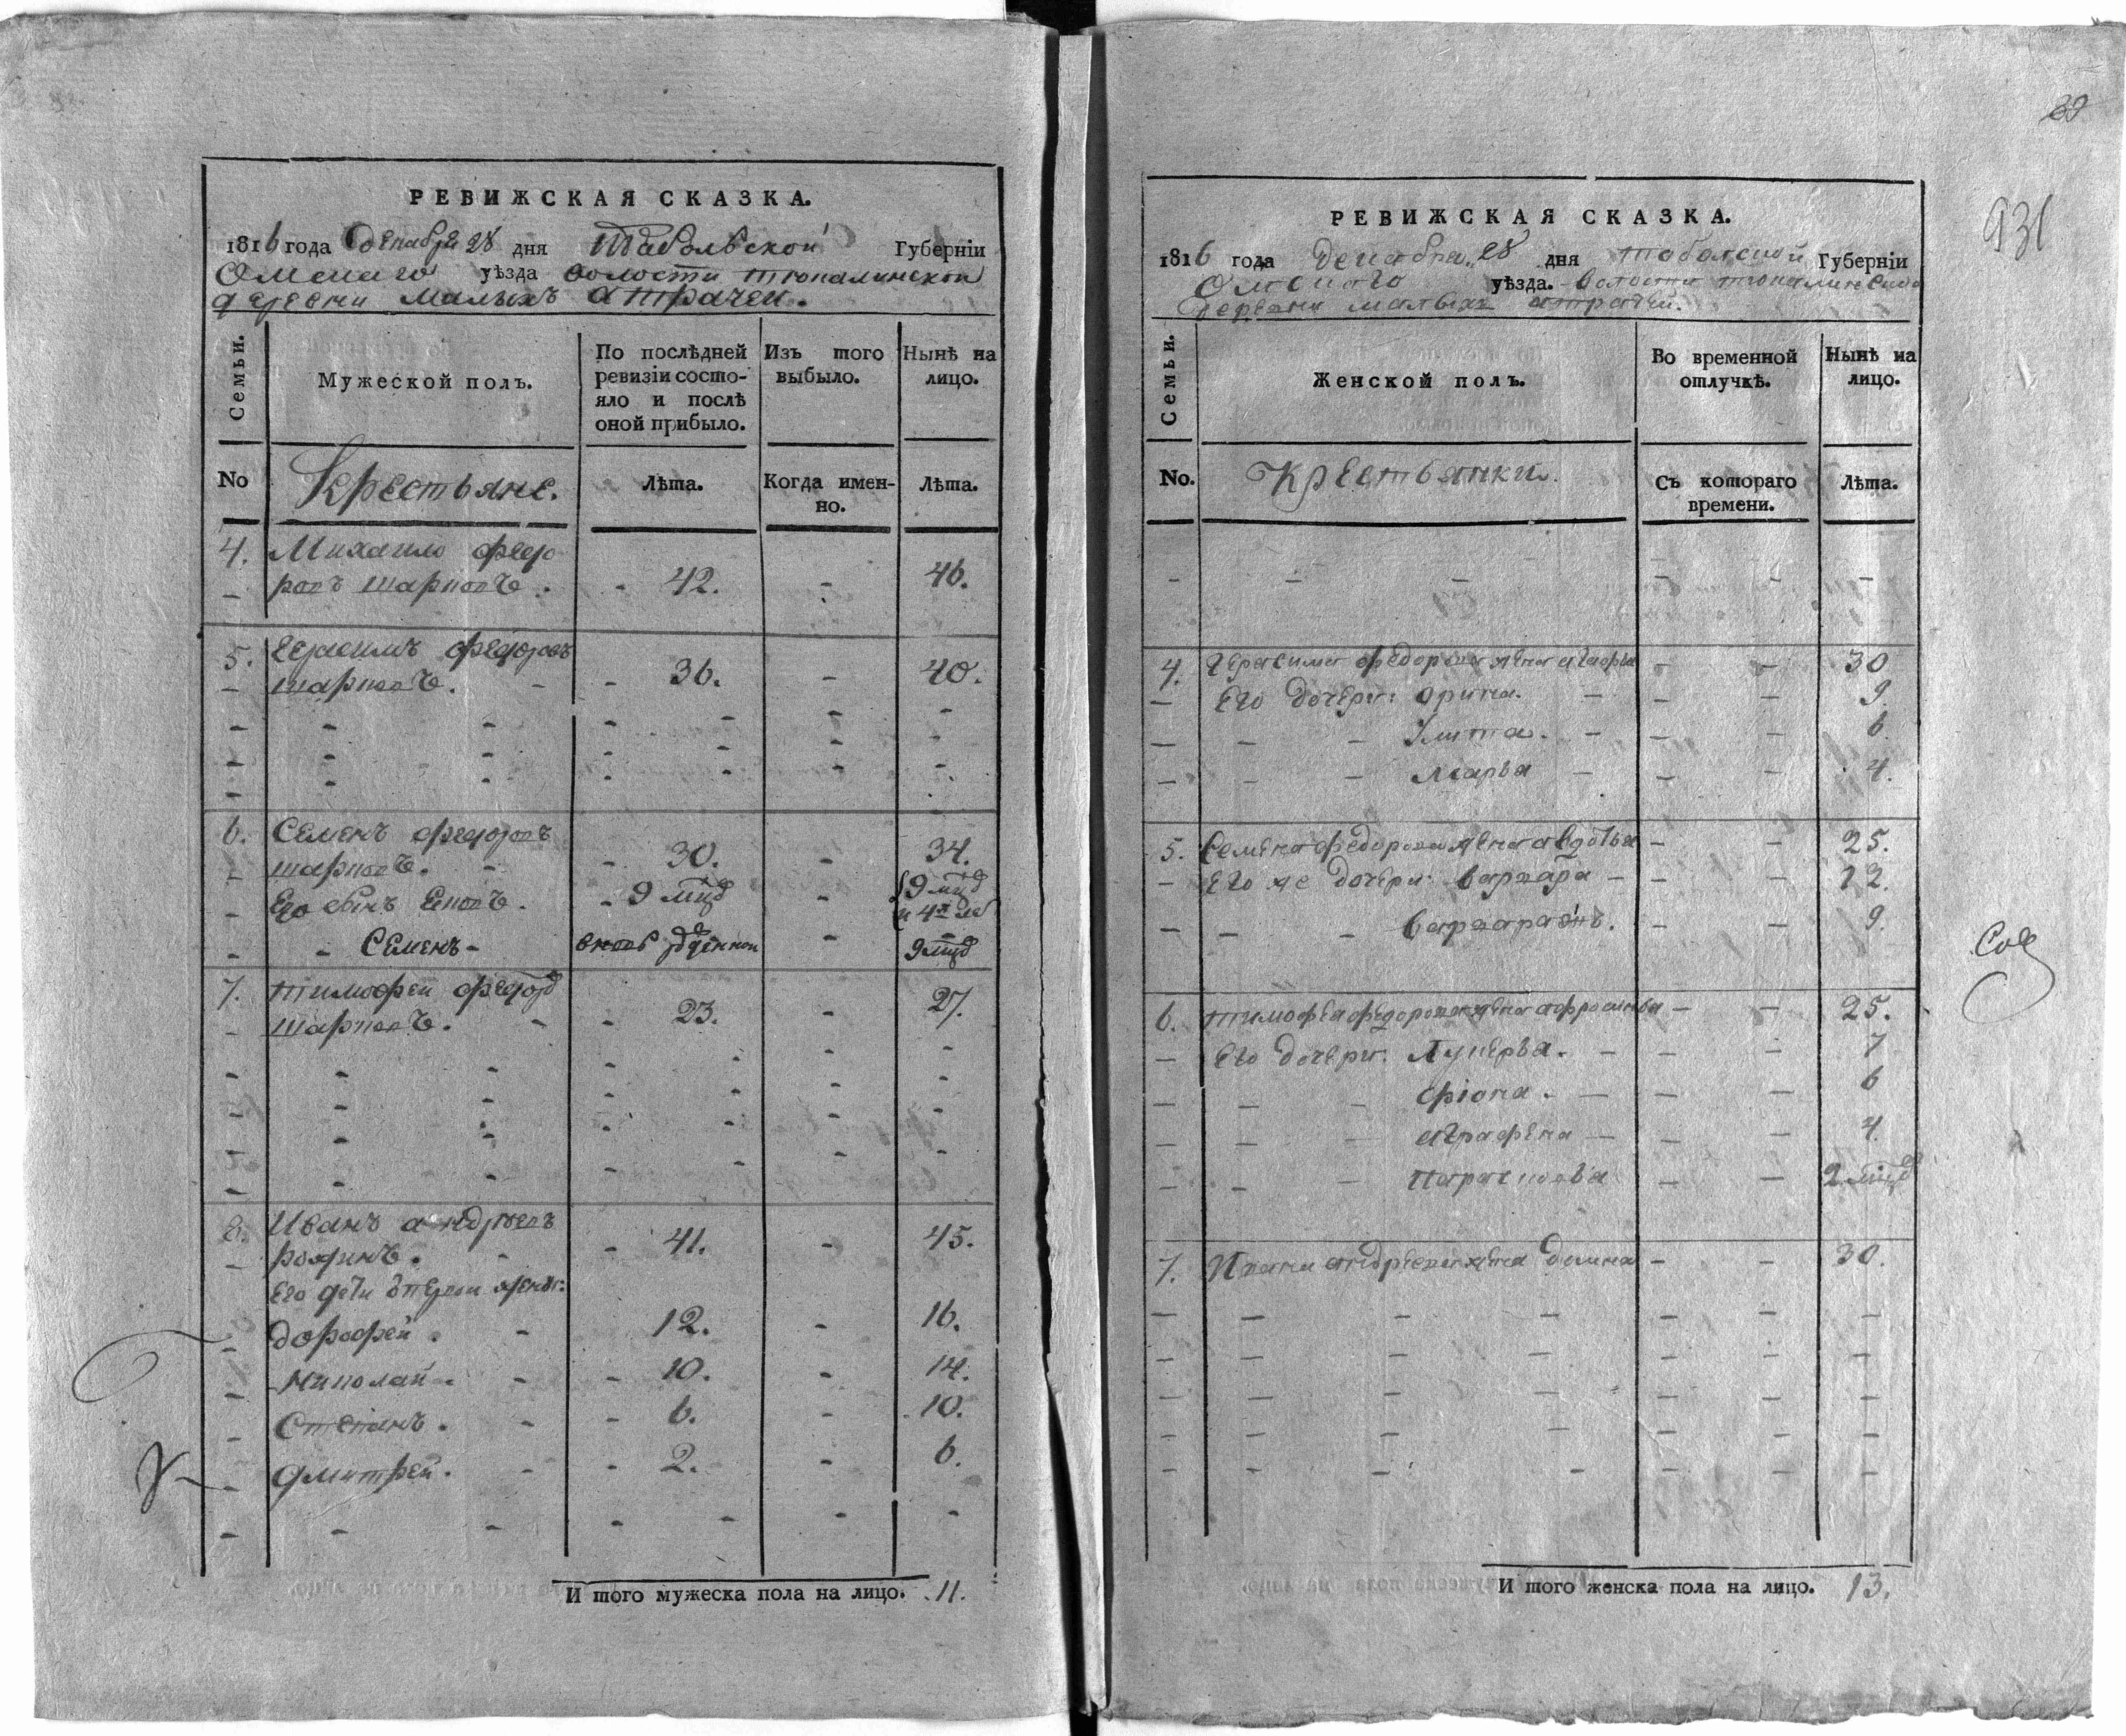 РЕВИЖСКАЯ СКАЗКА.
1816 года Декабря 28 дня Тобольской Губерніи
Омскаго уѣзда волости тюкалинской
деревни малыхъ атрачей.
Семьи.
Мужеской полъ.
По послѣдней ревизіи состо-
яло и послѣ
оной прибыло.
Изъ того
выбыло.
Нынѣ на
лицо.
No
Крестьяне.
Лѣта.
Когда имен-
но.
Лѣта.
4. Михаило федо
ровъ шарповъ. 42. 46.
5. Герасимъ федоровъ
шарповъ. 36. 40.
6. Семенъ федоровъ
шарповъ. 30. 34.
Его сынъ 9 мцд 9 мцд
Семенъ 9 мцд
7. тимофей федоров
шарповъ. 23. 27.
8. Иванъ андреевъ
Его дети
дорофей. 12. 16.
Николай. 10. 14.
Степанъ. 6. 10.
дмитрей. 2. 6.
И того мужеска пола на лицо. 11.
39
931
РЕВИЖСКАЯ СКАЗКА.
1816 года Декабря 28 дня тобольской Губерніи
Омскаго уѣзда. волости тюкалинской
деревни малыхъ атрачей.
Семьи.
Женской полъ.
Во временной
отлучкѣ.
Нынѣ на
лицо.
No.
Крестьянки.
Съ котораго
времени.
Лѣта.
4. Герасима федорова жена агафья 30
Его дочери: орина. 9.
Улита. 6.
Марья 4.
5. Семена федорова жена авдотья 25.
Его же дочери: варвара 12.
9.
6. тимофея федорова жена афросинья 25.
Его дочери: Лукерья. 7
фіона. 6
аграфена 4.
Парасковья 2 мцд
7. Ивана андреева жена домна 30.
И того женска пола на лицо. 13.